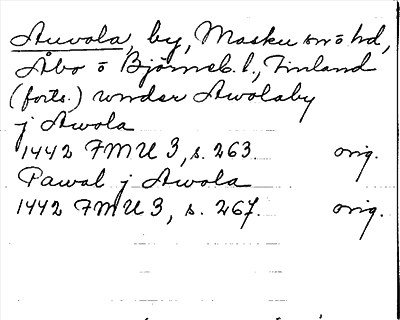 Auvola, by, Masku sn o hd,
Åbo o Björneb. l., Finland
(forts.) under Awolaby
j Awola
1442 FMU 3, s. 263. orig.
Pawal j Awola
1442 FMU 3, s. 267. orig.